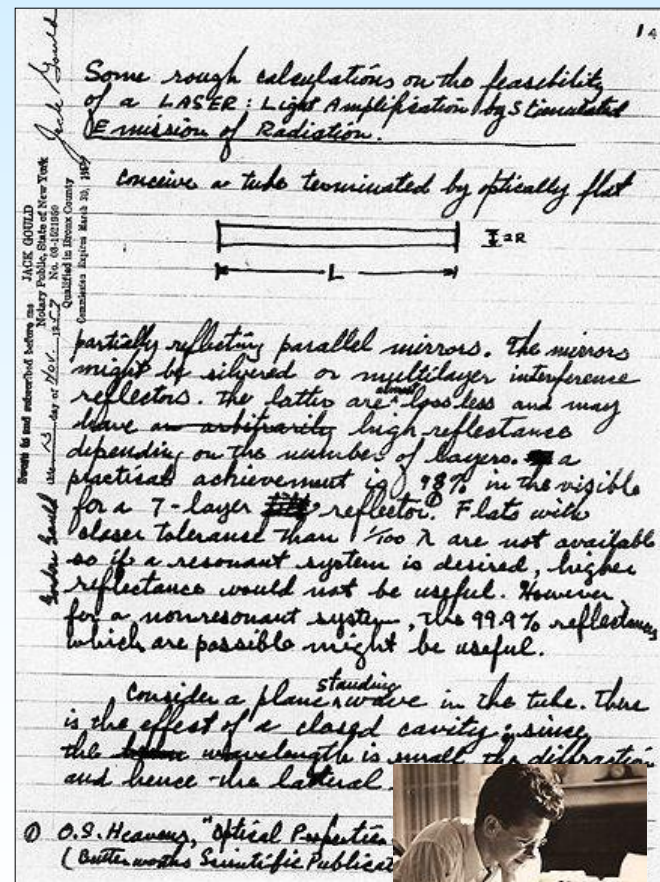 14
Some rough calculations on the feasibility
of a LASER: Light Amplification by Stimulated
Emission of Radiation.
conceive a tube terminated by optically flat
2R
L
partially reflecting parallel mirrors. The mirrors
might be silvered or multilayer interference
reflectors. The latter are almost lossless and may
have an arbitrarily high reflectance
depending on the number of layers. a
practical achievement is 98% in the visible
for a 7-layer reflector.① Flats with
closer tolerance than 1/100 λ are not available
so if a resonant system is desired, higher
reflectance would not be useful. However
for a nonresonant system, the 99.9% reflectances
which are possible might be useful.
Consider a plane standing wave in the tube. There
is the effect of a closed cavity; since
the wavelength is small the diffraction
and hence the lateral
① O.S. Heavens, "Optical Properties
(Butterworths Scientific Publicat
Jack Gould
JACK GOULD
Notary Public, State of New York
No. 03-1521950
Qualified in Bronx County
Commission Expires March 30, 1959
Sworn to and subscribed before me
this 13 day of Nov. 1957
Gordon Gould